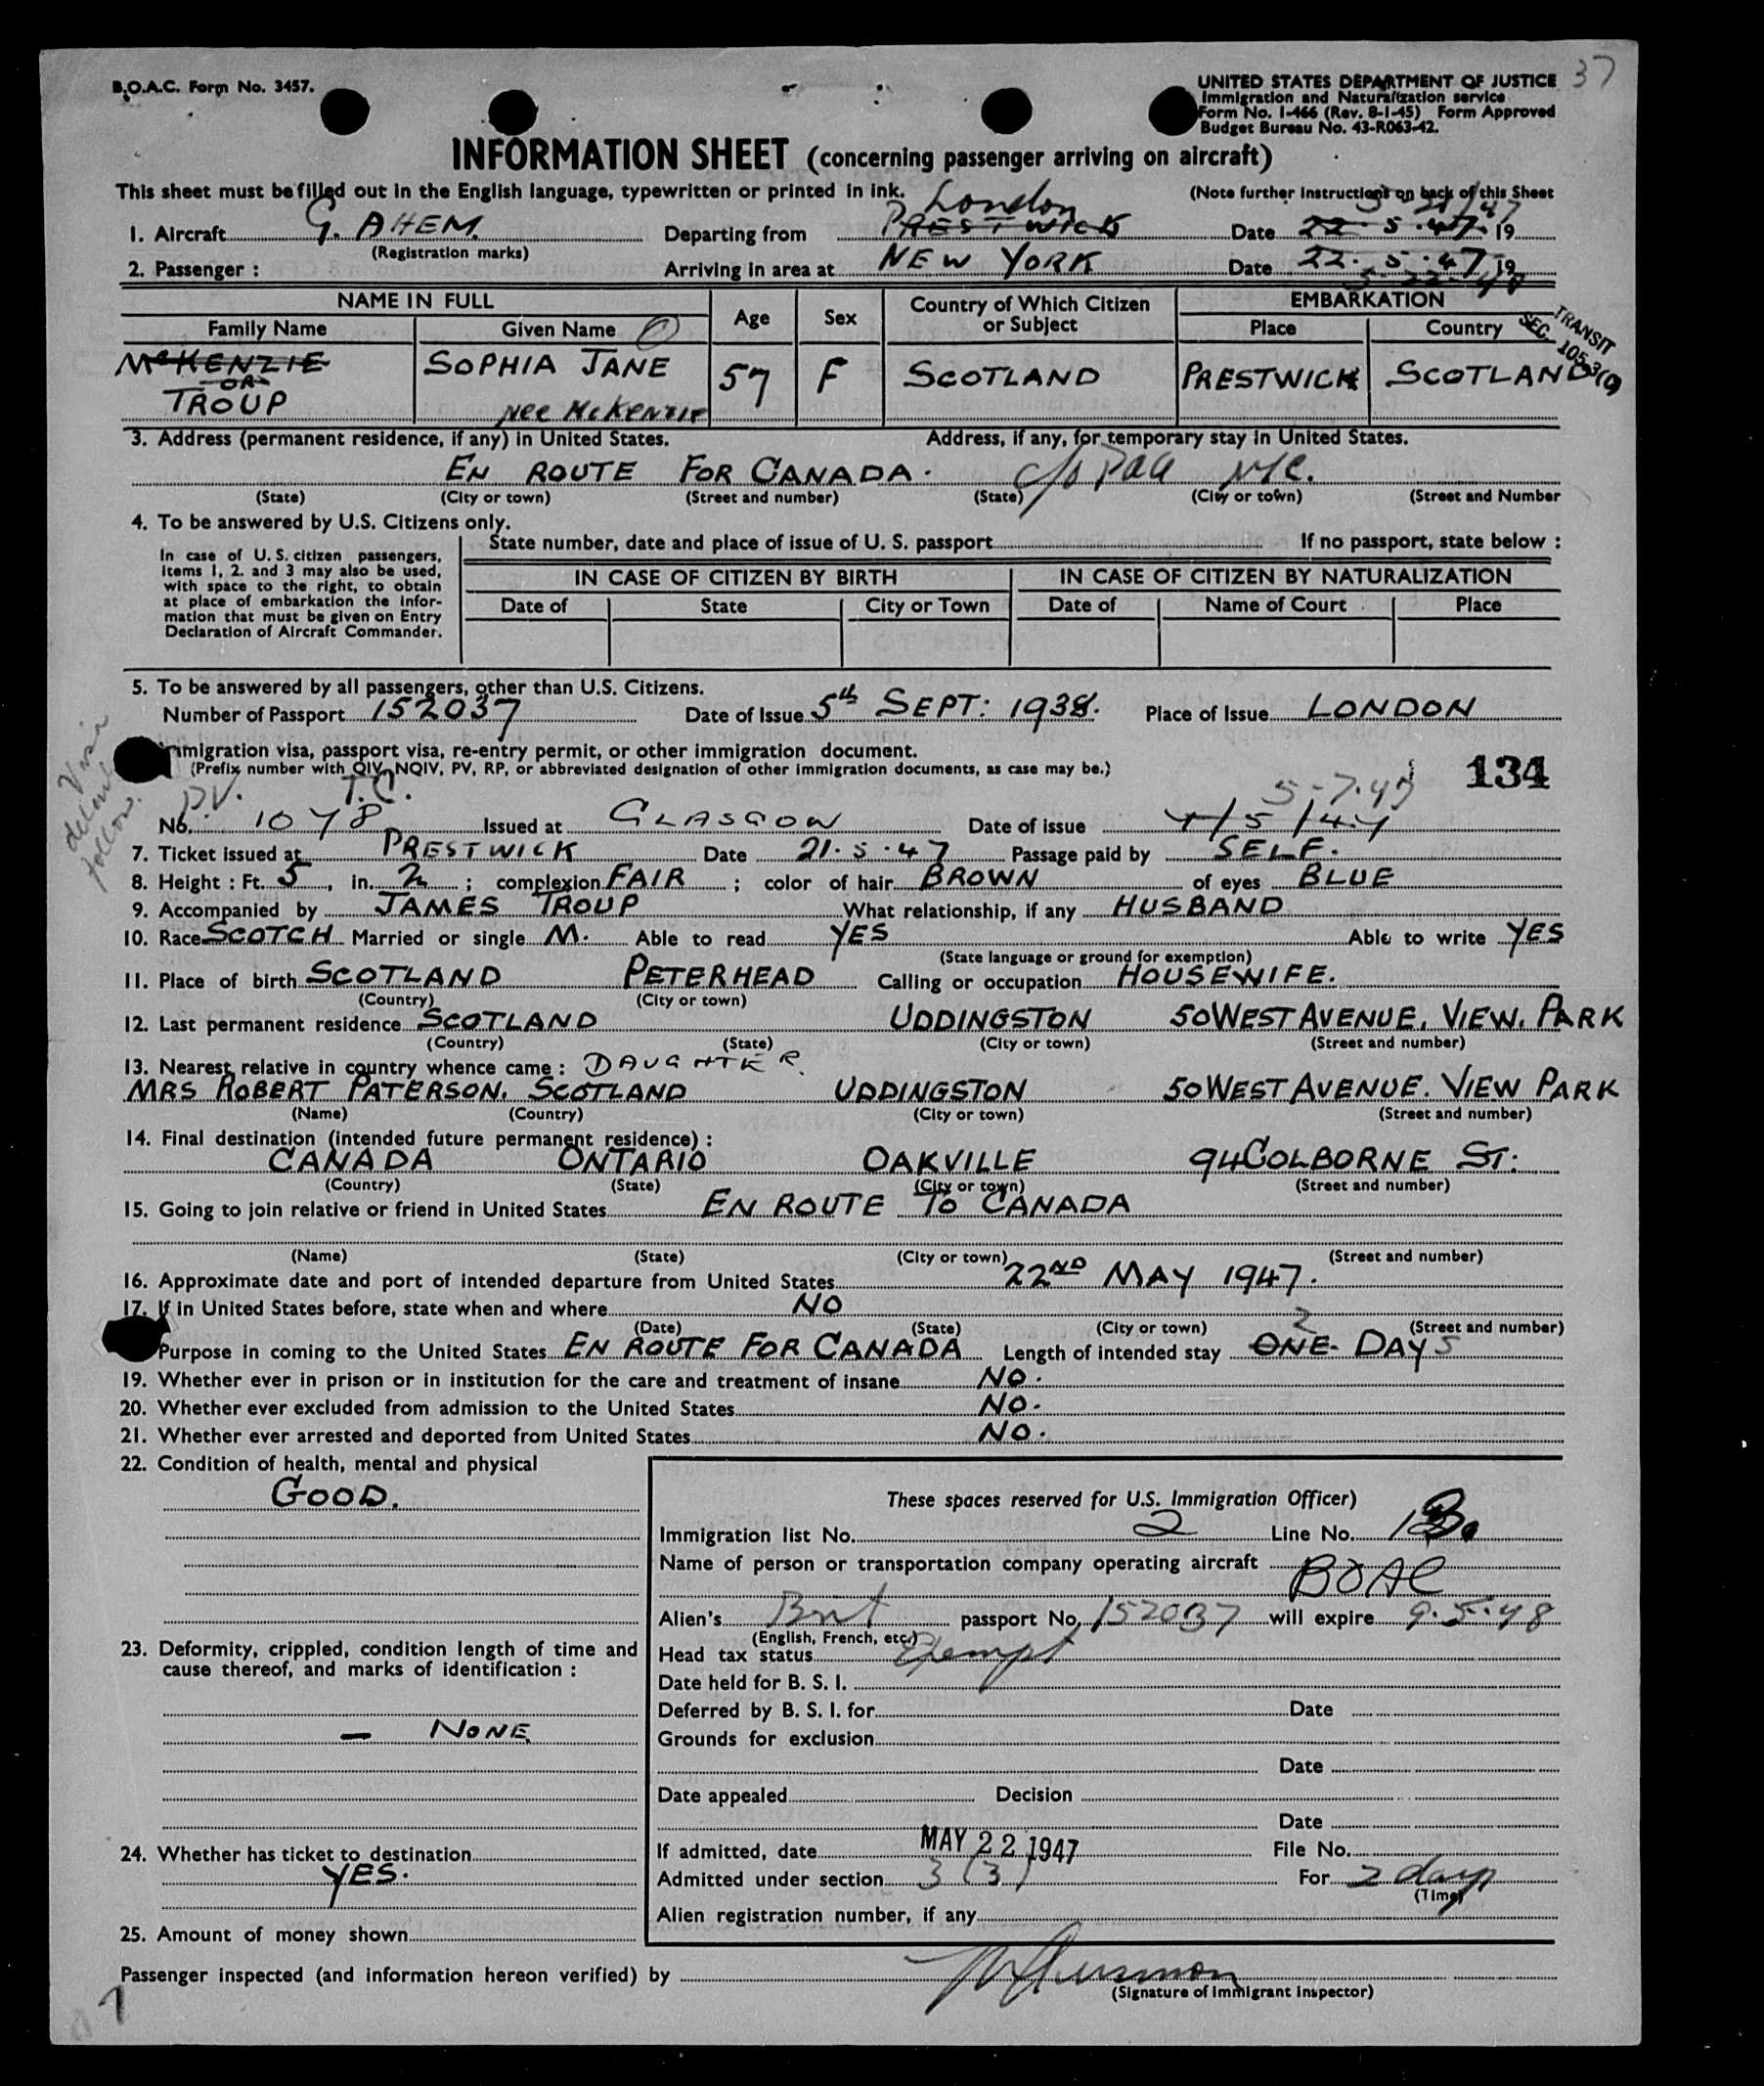 37
B.O.A.C. Form No. 3457.
UNITED STATES DEPARTMENT OF JUSTICE
Immigration and Naturalization service
Form No. I-466 (Rev. 8-1-45) Form Approved
Budget Bureau No. 43-R063-42.
INFORMATION SHEET (concerning passenger arriving on aircraft)
This sheet must be filled out in the English language, typewritten or printed in ink.
(Note further instructions on back of this Sheet
London
1. Aircraft G. AHEM. Departing from PRESTWICK Date 22. 5. 47. 19
(Registration marks)
2. Passenger : Arriving in area at NEW YORK Date 22. 5. 47 19
NAME IN FULL Age Sex Country of Which Citizen or Subject EMBARKATION
Family Name Given Name Place Country
TRANSIT
SEC. 105.3(9)
McKENZIE OR TROUP SOPHIA JANE 57 F SCOTLAND PRESTWICK SCOTLAND
nee McKenzie
3. Address (permanent residence, if any) in United States. Address, if any, for temporary stay in United States.
EN ROUTE FOR CANADA. c/o Paa NYC.
(State) (City or town) (Street and number) (State) (City or town) (Street and Number
4. To be answered by U.S. Citizens only.
In case of U.S. citizen passengers, items 1, 2. and 3 may also be used, with space to the right, to obtain at place of embarkation the information that must be given on Entry Declaration of Aircraft Commander.
State number, date and place of issue of U. S. passport If no passport, state below :
IN CASE OF CITIZEN BY BIRTH IN CASE OF CITIZEN BY NATURALIZATION
Date of State City or Town Date of Name of Court Place
5. To be answered by all passengers, other than U.S. Citizens.
Number of Passport 152037 Date of Issue 5th SEPT: 1938. Place of Issue LONDON
Immigration visa, passport visa, re-entry permit, or other immigration document.
(Prefix number with QIV, NQIV, PV, RP, or abbreviated designation of other immigration documents, as case may be.)
134
PV. T.C. 5-7-47
No. 1078 Issued at GLASGOW Date of issue 7/5/47
7. Ticket issued at PRESTWICK Date 21.5.47 Passage paid by SELF.
8. Height : Ft. 5, in. 2 ; complexion FAIR ; color of hair BROWN of eyes BLUE
9. Accompanied by JAMES TROUP What relationship, if any HUSBAND
10. Race SCOTCH Married or single M. Able to read YES Able to write YES
(State language or ground for exemption)
11. Place of birth SCOTLAND PETERHEAD Calling or occupation HOUSEWIFE.
(Country) (City or town)
12. Last permanent residence SCOTLAND UDDINGSTON 50 WEST AVENUE, VIEW, PARK
(Country) (State) (City or town) (Street and number)
13. Nearest relative in country whence came : DAUGHTER.
MRS ROBERT PATERSON. SCOTLAND UDDINGSTON 50 WEST AVENUE. VIEW PARK
(Name) (Country) (City or town) (Street and number)
14. Final destination (intended future permanent residence) :
CANADA ONTARIO OAKVILLE 94 COLBORNE ST:
(Country) (State) (City or town) (Street and number)
15. Going to join relative or friend in United States EN ROUTE TO CANADA
(Name) (State) (City or town) (Street and number)
16. Approximate date and port of intended departure from United States 22ND MAY 1947.
17. If in United States before, state when and where NO
(Date) (State) (City or town) (Street and number)
Purpose in coming to the United States EN ROUTE FOR CANADA Length of intended stay ONE 2 DAYS
19. Whether ever in prison or in institution for the care and treatment of insane NO.
20. Whether ever excluded from admission to the United States NO.
21. Whether ever arrested and deported from United States NO.
22. Condition of health, mental and physical
GOOD.
23. Deformity, crippled, condition length of time and cause thereof, and marks of identification :
— NONE.
24. Whether has ticket to destination
YES.
25. Amount of money shown
These spaces reserved for U.S. Immigration Officer)
Immigration list No. 2 Line No.
Name of person or transportation company operating aircraft BOAC
Alien's Brit passport No. 152037 will expire 9.5.48
(English, French, etc.)
Head tax status Exempt
Date held for B. S. I.
Deferred by B. S. I. for Date
Grounds for exclusion
Date
Date appealed Decision
Date
If admitted, date MAY 22 1947 File No.
Admitted under section 3 (3) For 2 days
(Time)
Alien registration number, if any
Passenger inspected (and information hereon verified) by
(Signature of Immigrant Inspector)